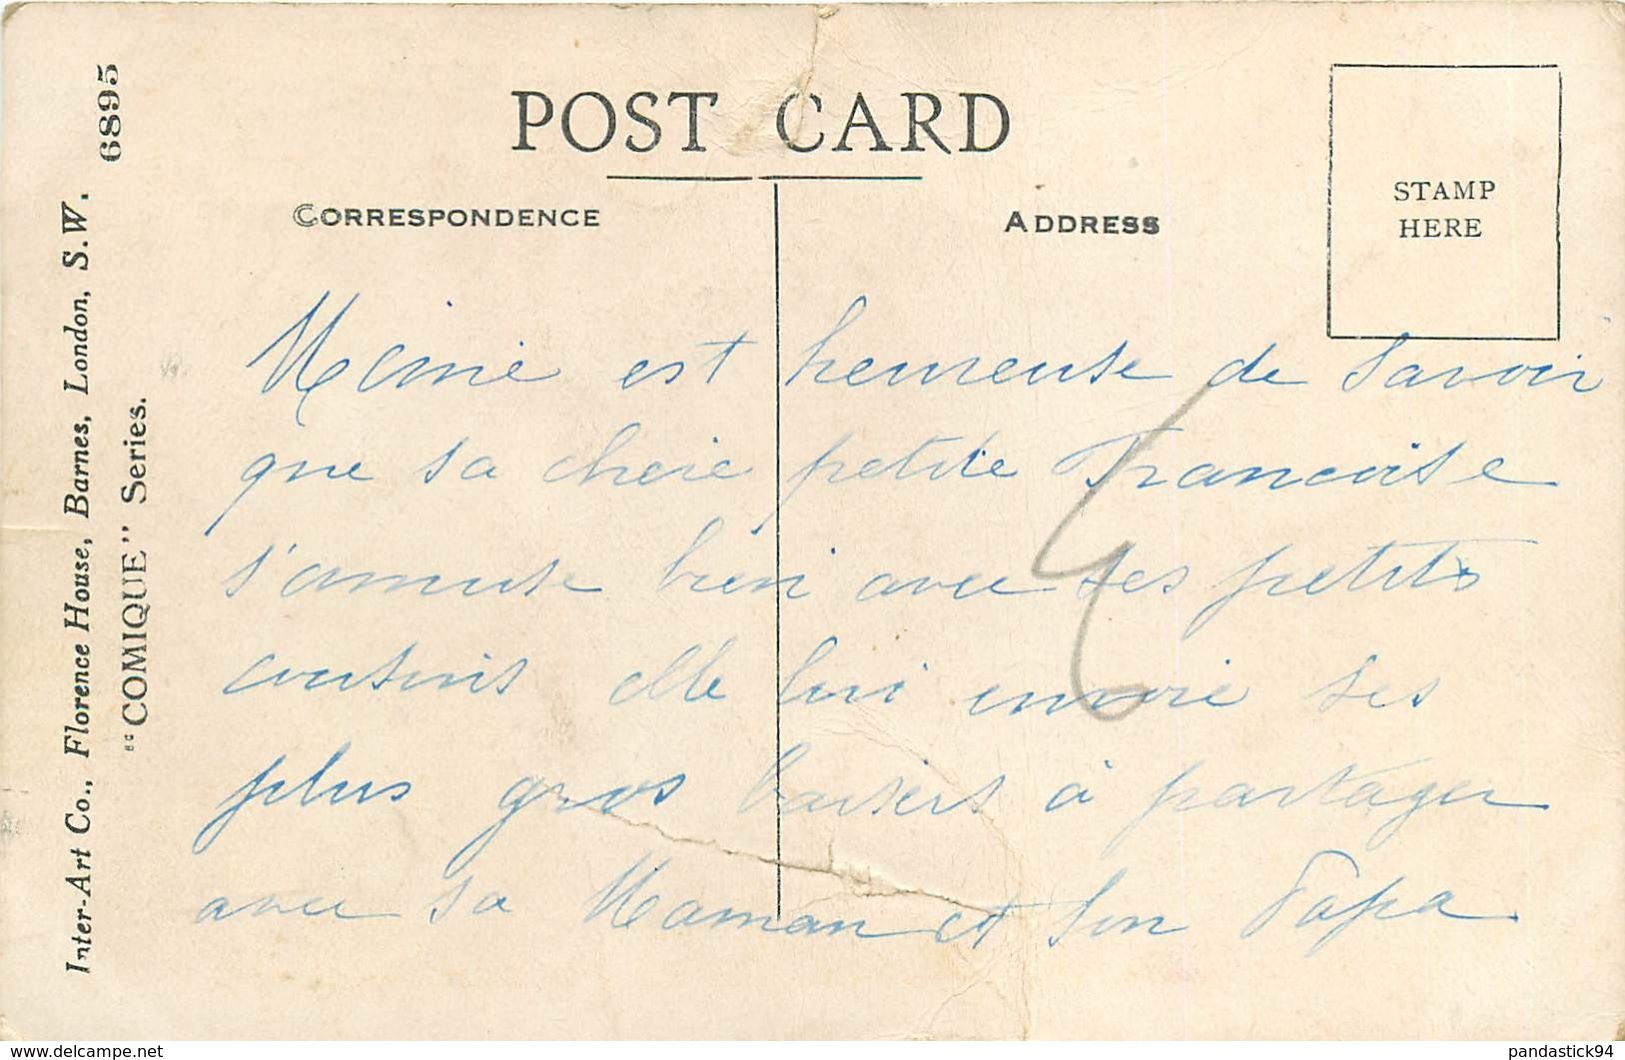 POST CARD
CORRESPONDENCE
ADDRESS
STAMP
HERE
Inter-Art Co., Florence House, Barnes, London, S.W.
"COMIQUE" Series.
6895
est heureuse de savoir
que sa chere petite Francoise
s'amuse bien avec ses petits
cousins elle lui envoie ses
plus gros baisers à partager
avec sa Maman et son Papa
4
www.delcampe.net
pandastick94